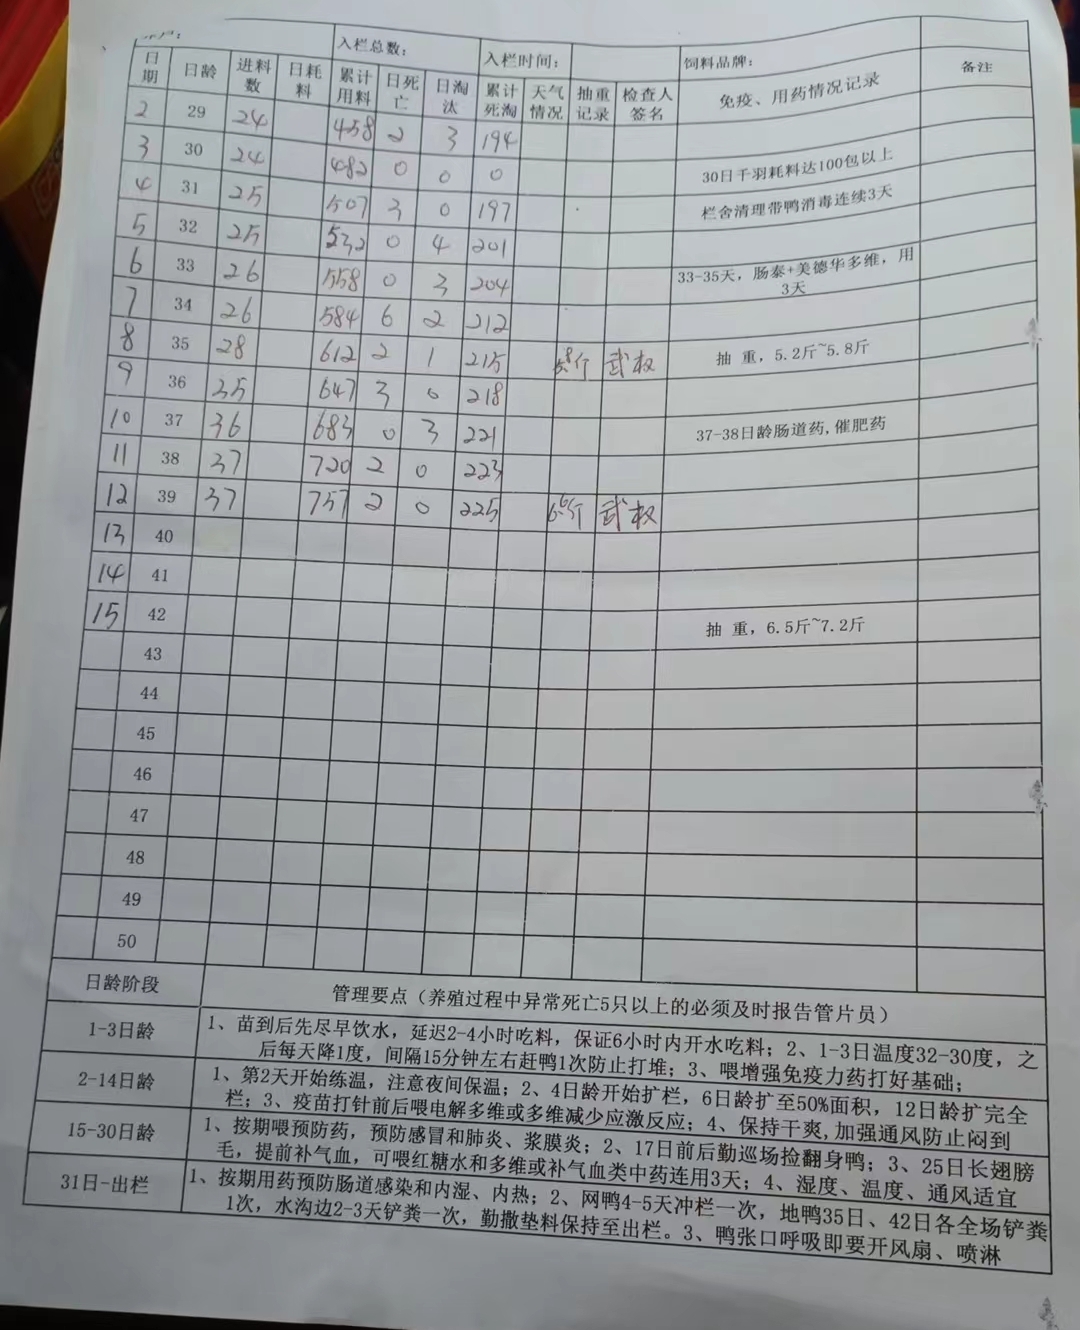 入栏总数： 入栏时间： 饲料品牌：
日期 日龄 进料数 日耗料 累计用料 日死亡 日淘汰 累计死淘 天气情况 抽重记录 检查人签名 免疫、用药情况记录 备注
2 29 24 458 2 3 194
3 30 24 482 0 0 0 30日千羽耗料达100包以上
4 31 25 507 3 0 197 栏舍清理带鸭消毒连续3天
5 32 25 532 0 4 201
6 33 26 558 0 3 204 33-35天，肠泰+美德华多维，用
3天
7 34 26 584 6 2 212
8 35 28 612 2 1 215 5.8斤 武权 抽 重，5.2斤~5.8斤
9 36 35 647 3 0 218
10 37 36 683 0 3 221 37-38日龄肠道药,催肥药
11 38 37 720 2 0 223
12 39 37 757 2 0 225 武权
13 40
14 41
15 42 抽 重，6.5斤~7.2斤
43
44
45
46
47
48
49
50
日龄阶段 管理要点（养殖过程中异常死亡5只以上的必须及时报告管片员）
1-3日龄 1、苗到后先尽早饮水，延迟2-4小时吃料，保证6小时内开水吃料；2、1-3日温度32-30度，之
后每天降1度，间隔15分钟左右赶鸭1次防止打堆；3、喂增强免疫力药打好基础；
2-14日龄 1、第2天开始练温，注意夜间保温；2、4日龄开始扩栏，6日龄扩至50%面积，12日龄扩完全
栏；3、疫苗打针前后喂电解多维或多维减少应激反应；4、保持干爽,加强通风防止闷到
15-30日龄 1、按期喂预防药，预防感冒和肺炎、浆膜炎；2、17日前后勤巡场捡翻身鸭；3、25日长翅膀
毛，提前补气血，可喂红糖水和多维或补气血类中药连用3天；4、湿度、温度、通风适宜
31日-出栏 1、按期用药预防肠道感染和内湿、内热；2、网鸭4-5天冲栏一次，地鸭35日、42日各全场铲粪
1次，水沟边2-3天铲粪一次，勤撒垫料保持至出栏。3、鸭张口呼吸即要开风扇、喷淋